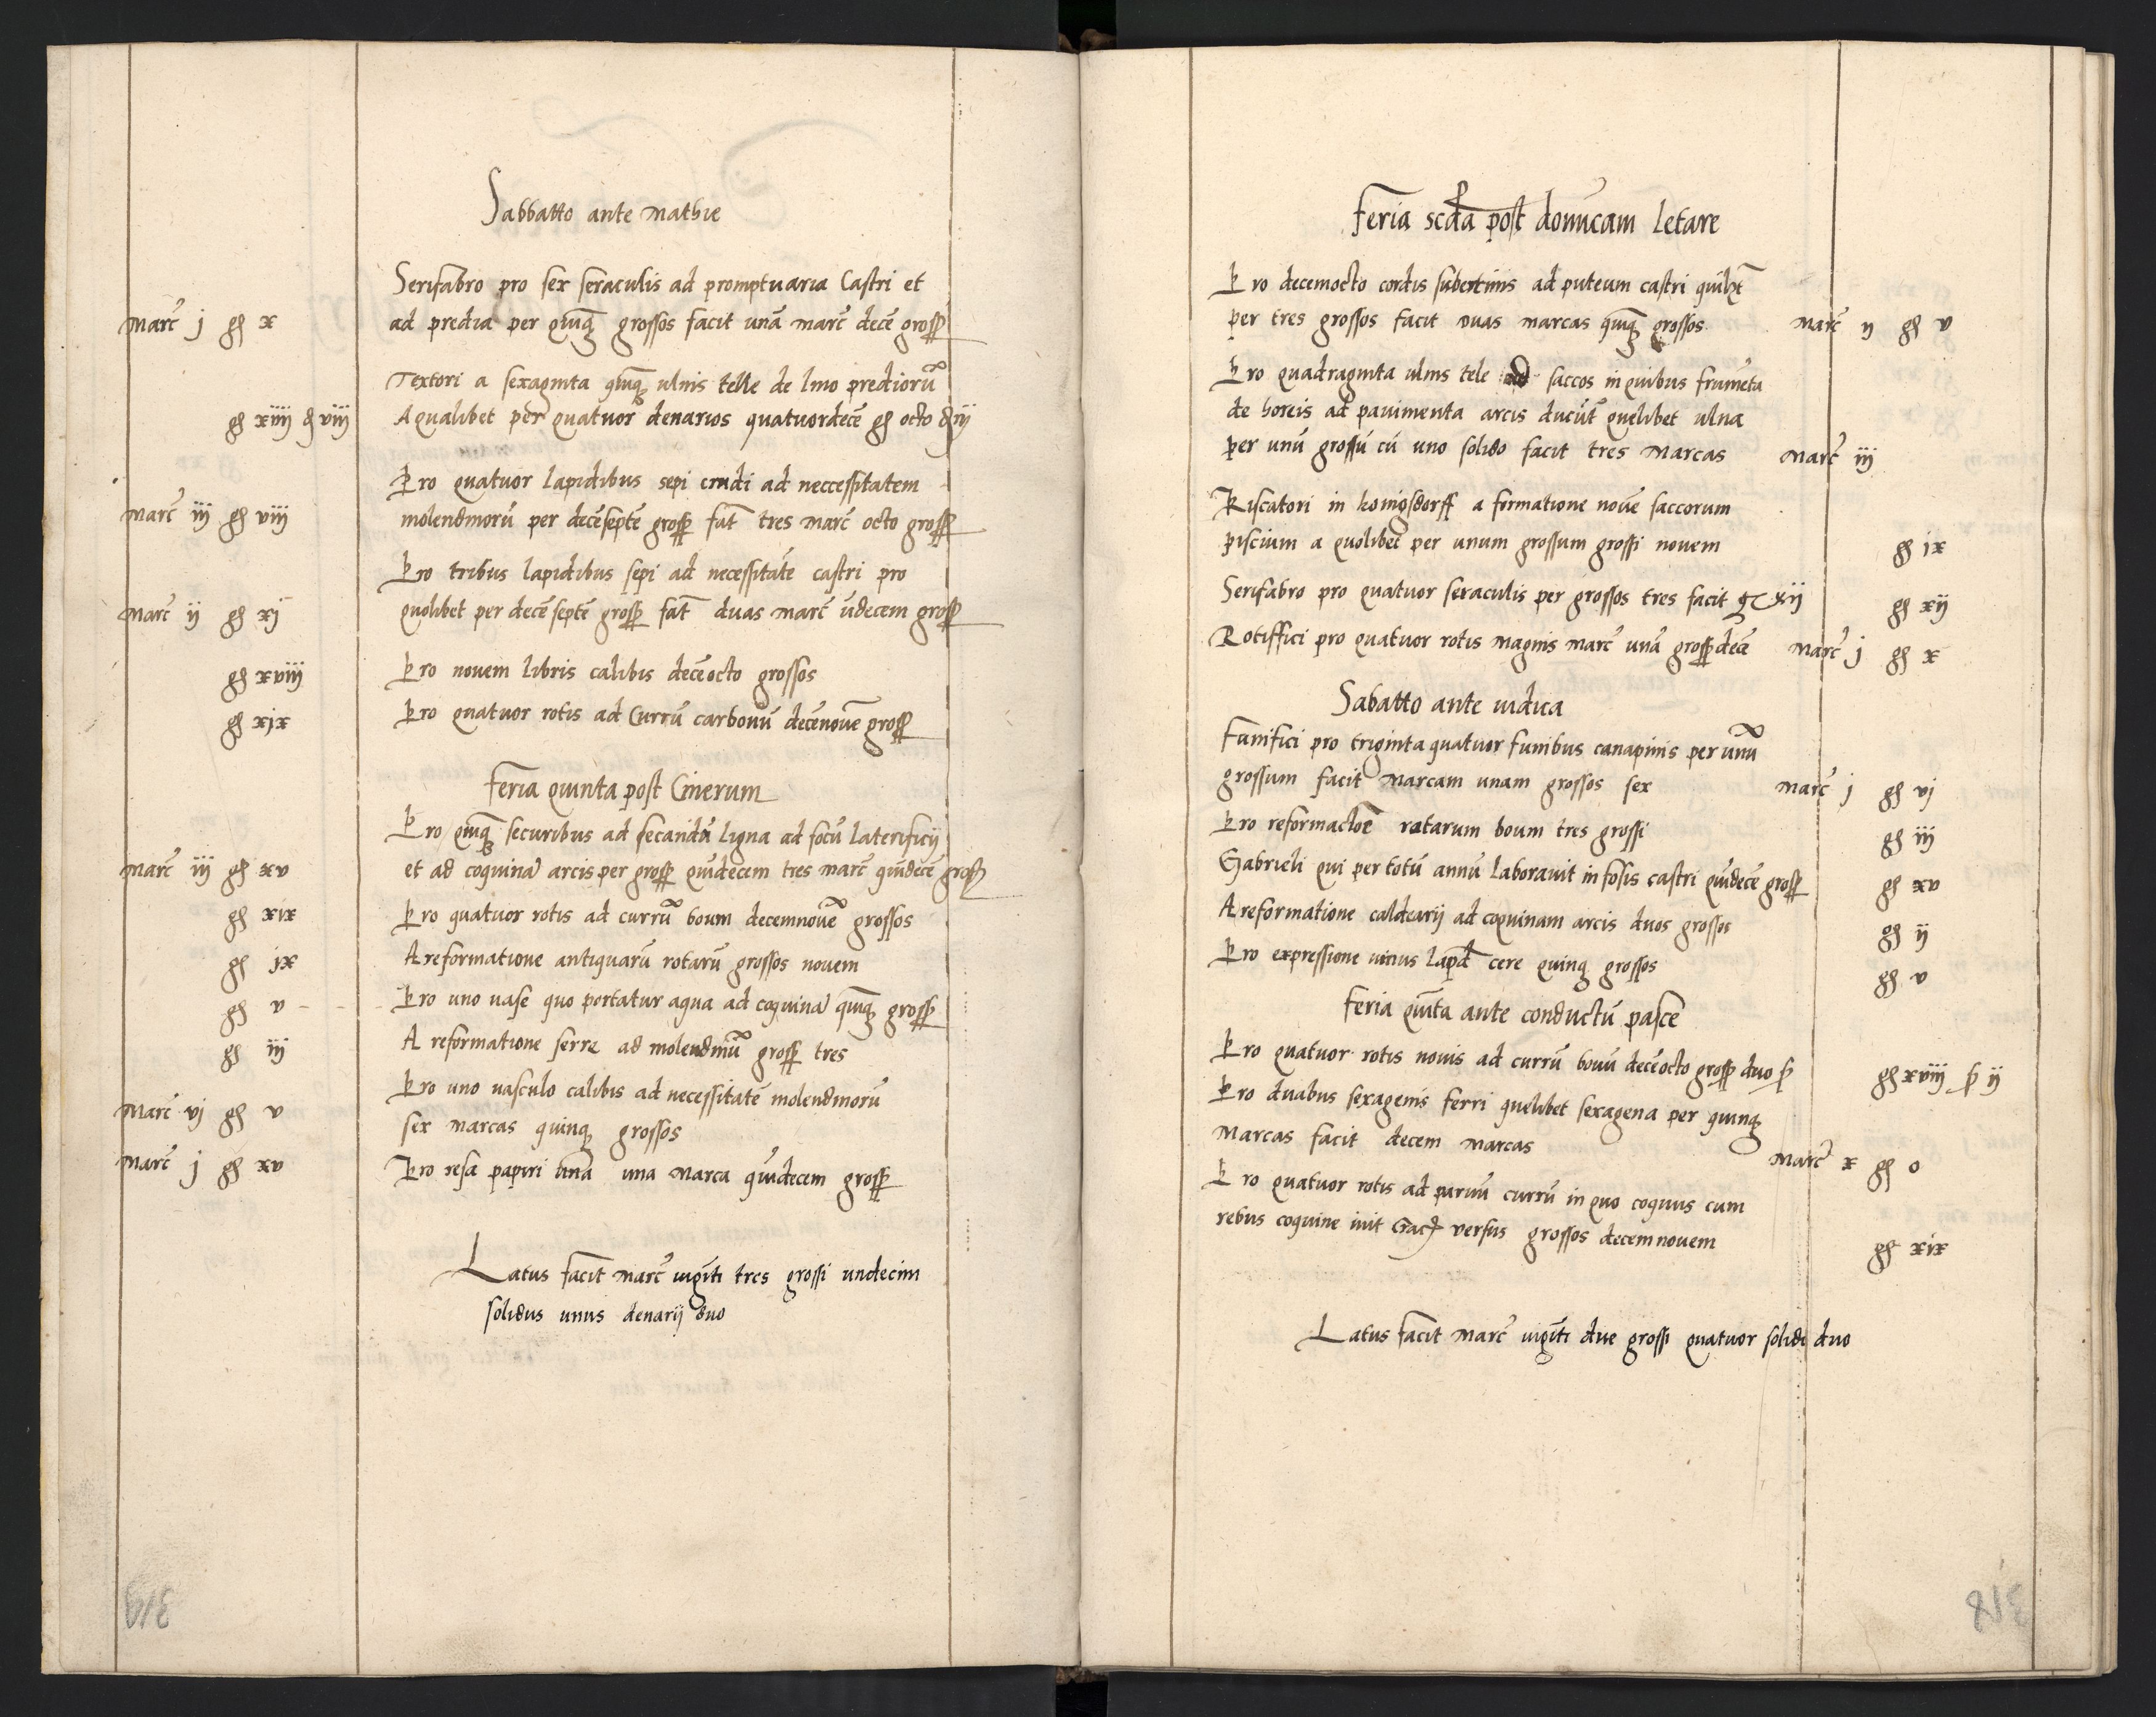 Sabbatto ante Mathie
Serifabro pro sex seraculis ad promptuaria Castri et
Marc̃ j gs x ad predia per quīq̃ grossos facit unã marc̃ decẽ gross
Textori a sexaginta quīq̃ ulnis telle de lino predioru͂
gs xiiij d viij A qualibet per quatuor denarios quatuordecẽ gs octo
Pro quatuor lapidibus sepi crudi ad neccessitatem
Marc̃ iij gs viij molendinorũ per decẽseptẽ gross fat̃ tres marc̃ octo gross
Pro tribus lapidibus sepi ad necessitatẽ castri pro
Marc̃ ij gs xj quolibet per decẽ septẽ gross fat̃ duas marc̃ ũdecem gross
gs xviij Pro novem libris calibis decẽocto grossos
gs xjx Pro quatuor rotis ad Currũ carbonũ decẽnovẽ gross
Feria quinta post Cinerum
Pro quīq̃ securibus ad secandũ ligna ad focũ laterificij
Marc̃ iij gs xv et ad coquinã arcis per gross quĩdecem tres marc̃ quĩdecẽ gross
gs xix Pro quatuor rotis ad currũ boum decemnovẽ grossos
gs jx A reformatione antiquarũ rotarũ grossos novem
gs v Pro uno vase quo portatur aqua ad coquinã quĩq̃ gross
gs iij A reformatione serre ad molendinũ gross tres
Pro uno vasculo calibis ad necessitatẽ molendinorũ
Marc̃ vj gs v sex marcas quinq̃ grossos
Marc̃ j gs xv Pro resa papiri una una Marca quĩdecem gross
Latus facit marc̃ viginti tres grossi undecim
solidus unus denarij duo
319
Feria scda post domĩcam Letare
Pro decemocto cordis subertinis ad puteum castri quilibet
per tres grossos facit duas marcas quīq̃ grossos Marc̃ ij gs v
Pro quadraginta ulnis tele ad saccos in quibus frumẽta
de horeis ad pavimenta arcis ducũt quelibet ulna
per unũ grossũ cũ uno solido facit tres Marcas Marc̃ iij
Piscatori in konigsdorff a formatione novẽ saccorum
piscium a quolibet per unum grossum grossi novem gs jx
Serifabro pro quatuor seraculis per grossos tres facit gr xij gs xij
Rotiffici pro quatuor rotis magnis marc̃ unã gross decẽ Marc̃ j gs x
Sabatto ante iudica
Funifici pro triginta quatuor funibus canapinis per unũ
grossum facit Marcam unam grossos sex Marc̃ j gs vj
Pro reformactoẽ rotarum boum tres grossi gs iij
Gabrieli qui per totũ annũ laboravit in fossis castri quĩdecẽ gross gs xv
A reformatione caldearij ad coquinam arcis duos grossos gs ij
Pro expressione unius lapid cere quinq̃ grossos gs v
Feria quĩta ante conductũ pasce
Pro quatuor rotis novis ad currũ bovũ decẽocto gross duo s̃ gs xviij s̃ ij
Pro duabus sexagenis ferri quelibet sexagena per quinq̃
Marcas facit decem marcas Marc̃ x gs o
Pro quatuor rotis ad parvũ currũ in quo coquus cum
rebus coquine ivit versus grossos decemnovem gs xix
Latus facit marc̃ viginti due grossi quatuor solidi duo
318